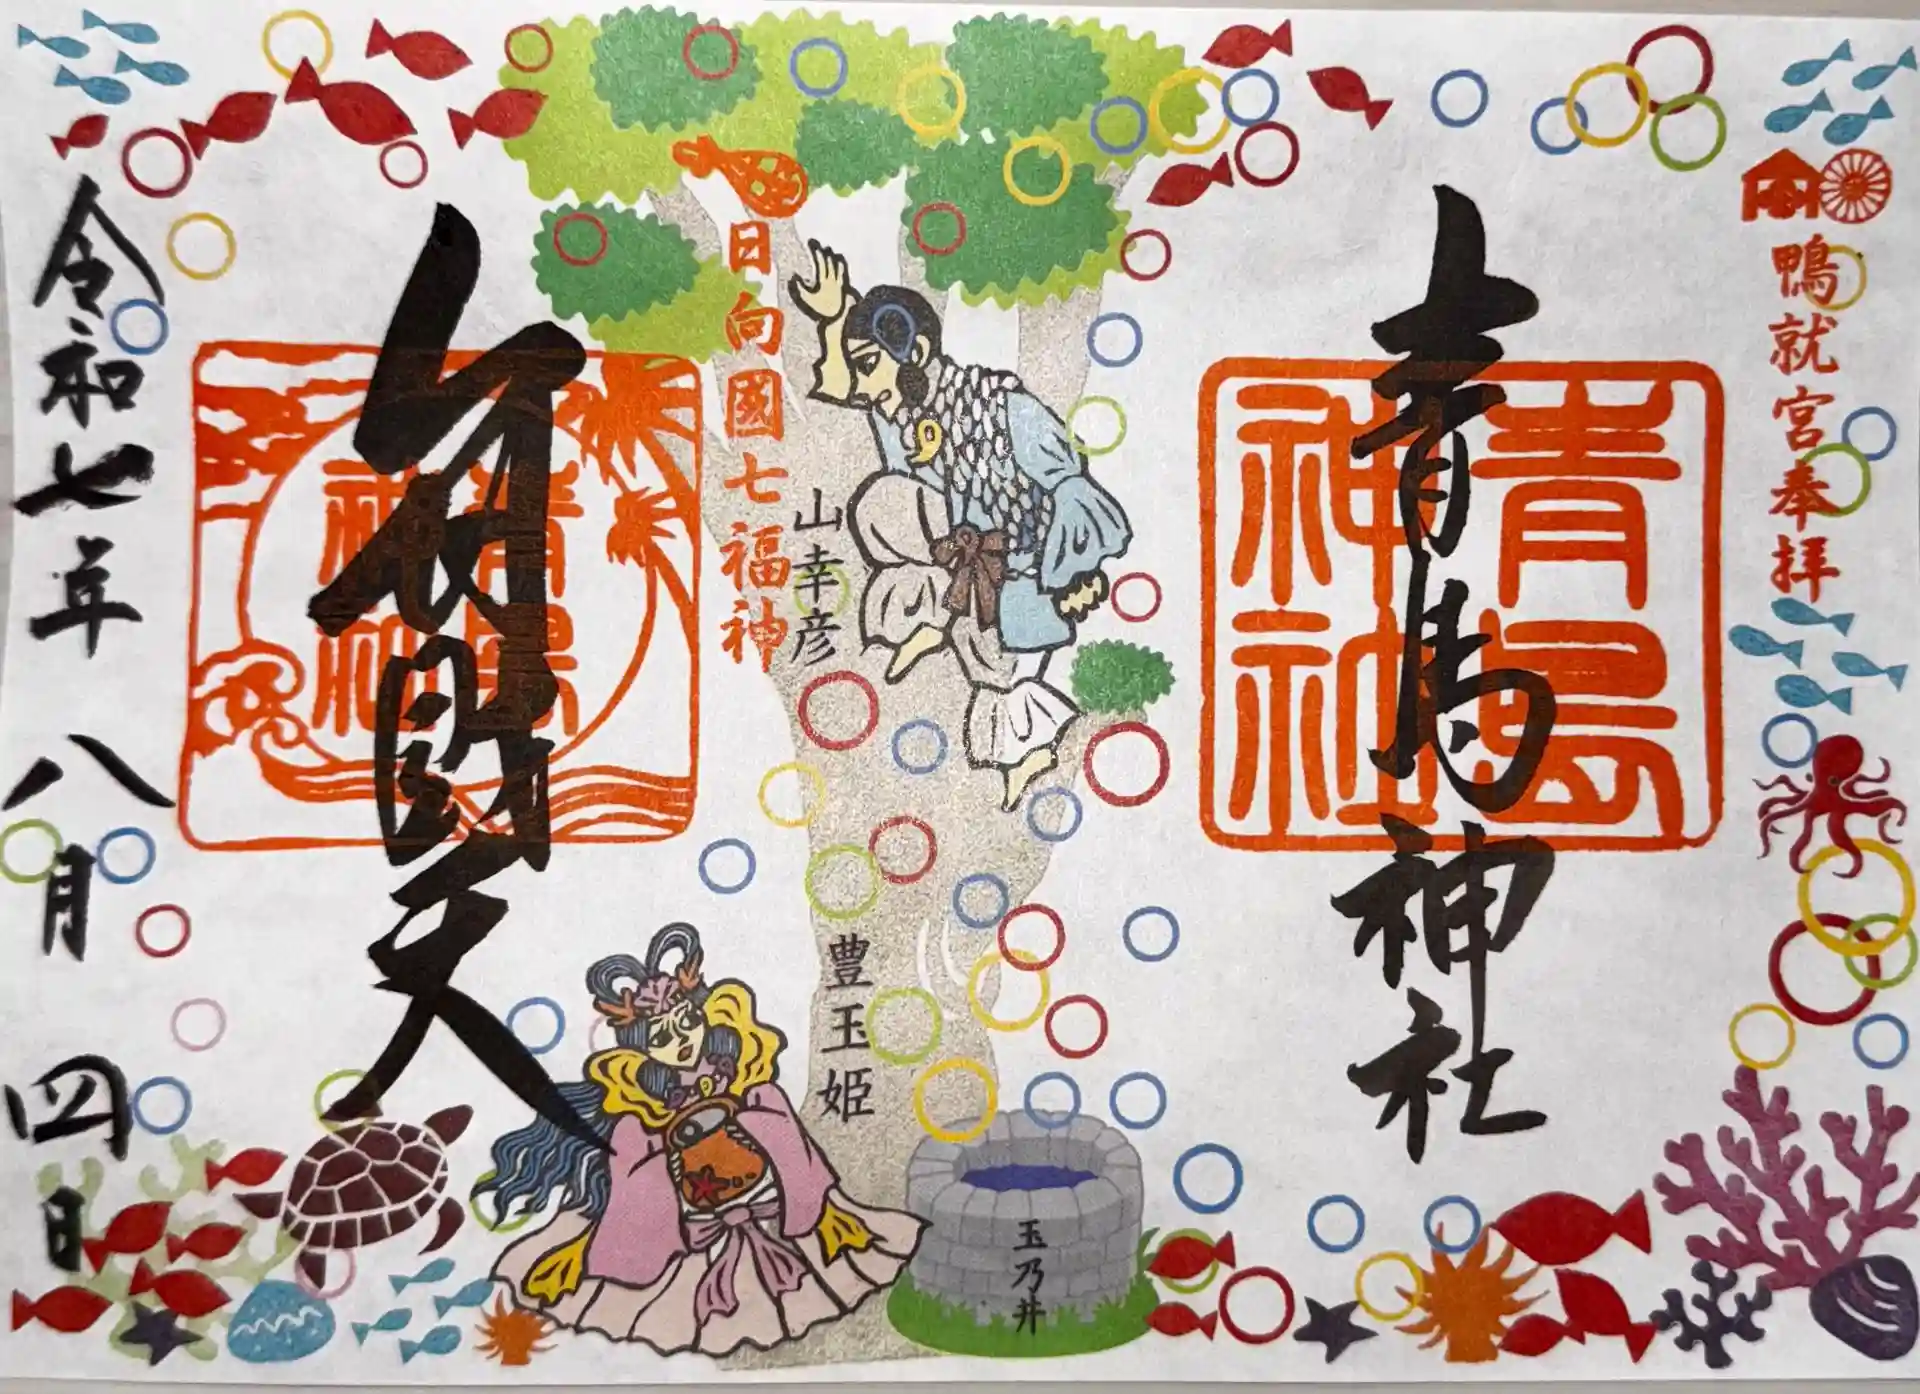 鴨就宮奉拝
青島神社
青島神社
日向國七福神
山幸彦
豊玉姫
玉乃井
弁財天
青島神社
令和七年八月四日